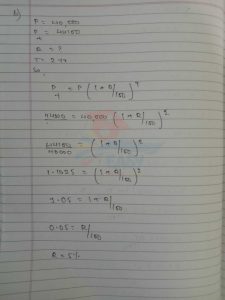 P = 40,000
P = 44100
n
R = ?
T = 2 yr
So,
P = P (1 + R/100)^n
n
44100 = 40,000 (1 + R/100)^2
44100/40000 = (1 + R/100)^2
1.1025 = (1 + R/100)^2
1.05 = 1 + R/100
0.05 = R/100
R = 5%